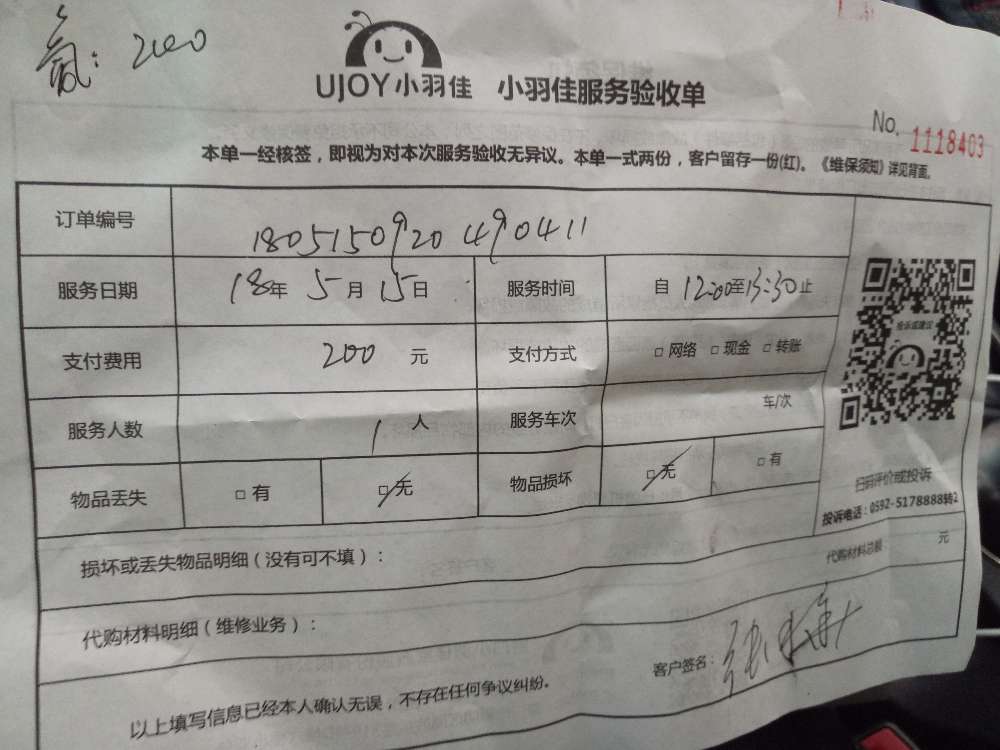 氟：200
UJOY小羽佳 小羽佳服务验收单
No. 1118403
本单一经核签，即视为对本次服务验收无异议。本单一式两份，客户留存一份(红)。《维保须知》详见背面。
订单编号 1805150920490411
服务日期 18年 5月 15日 服务时间 自 12:00至13:30止
支付费用 200 元 支付方式 □ 网络 □ 现金 □ 转账
投诉或建议
服务人数 1 人 服务车次 车/次
物品丢失 □ 有 □ 无 物品损坏 □ 无 □ 有
扫码评价或投诉
投诉电话：0592-5178888转2
损坏或丢失物品明细（没有可不填）：
代购材料总额 元
代购材料明细（维修业务）：
客户签名：
以上填写信息已经本人确认无误，不存在任何争议纠纷。